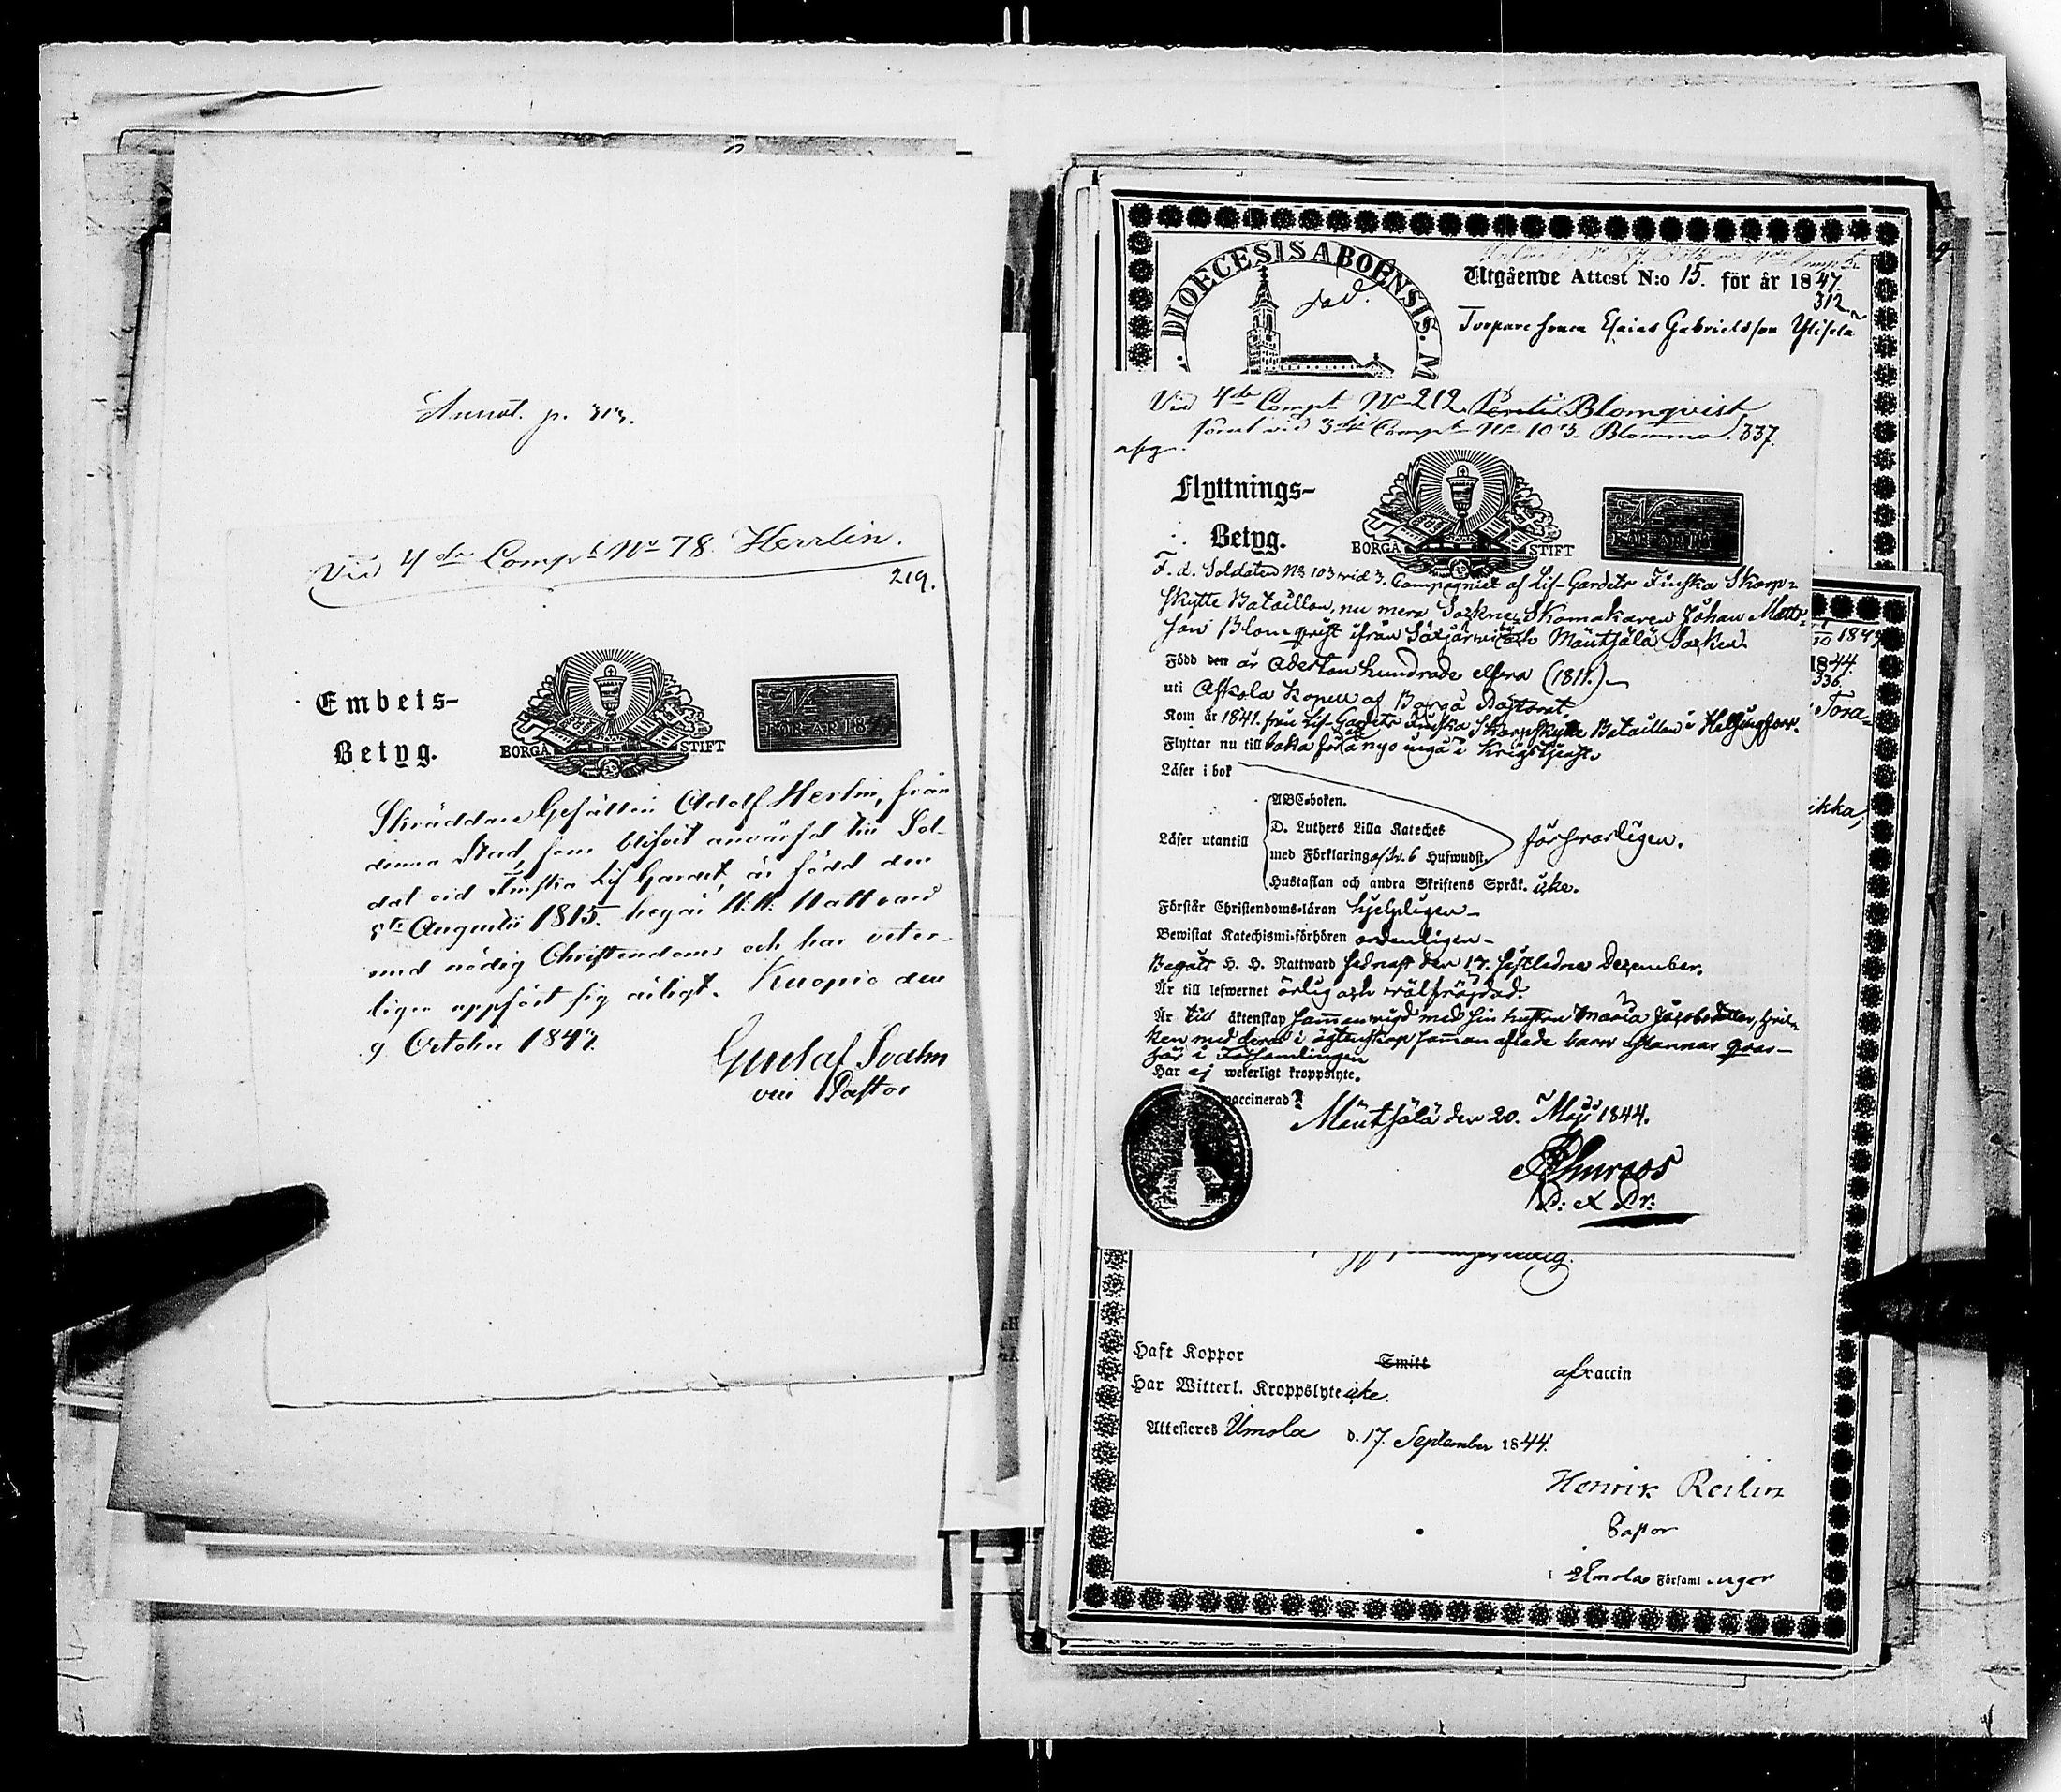 Annot. p. 313.
Vid 4de Compt No 78 Herrlin.
219.
Embets-
Betyg.
BORGÅ STIFT
FÖR ÅR 184
Skräddare Gesällen Adolf Herlin, från
denna Stad, som blifvit anvärfd till Sol-
dat vid Finska Lif Gardet, är född den
5te Augusti 1815. begår H. H. Nattvard
med nödig Christendoms och har veter-
ligen uppfört sig ärligt. Kuopio den
9 October 1843.
Gustaf
vice Pastor
DIOECESIS ABOËNSIS. M
Utgående Attest N:o 15. för år 1847.
312
Torpare sonen Esaias Gabrielsson Ylisela
Vid 4de Compt No 212 Blomqvist
samt vid 3die Compt No 103. Blomma. 337.
afg.
Flyttnings-
Betyg.
BORGÅ STIFT
F. d. Soldaten No 103 vid 3. Compagniet af Lif-Gardets Finska Skarp-
skytte Bataillon, nu mera Sockne-Skomakaren Johan Matts-
son Blomqvist ifrån Mäntsälä Socken.
Född den år Aderton hundrade elfva (1811.)
uti Askola Kapell af Borgå Pastorat.
Kom år 1841. från Lif-Gardets Finska Skarpskytte Bataillon i Helsingfors.
Flyttar nu tillbaka för att å nyo ingå i Krigstjenst.
Läser i bok
ABC-boken.
D. Luthers Lilla Kateches
Läser utantill
försvarligen.
med Förklaring af Dr. 6 Hufwudst.
Hustaflan och andra Skriftens Språk. icke.
Förstår Christendoms-läran hjelpligen
Bewistat Katechismi-förhören ordentligen
Begått H. H. Nattward sednast den 17. sistledne December.
Är till lefwernet ärlig och välfräjdad.
Är till äktenskap sammanvigd med sin hustru Maria Jacobsdotter, hvil-
ken med deras i ägtenskap samman aflade barn stannar qvar
här i Församlingen
Har ej weterligt kroppslyte.
vaccinerad
Mäntsälä den 20. Maji 1844.
1844.
336.
Tora-
ikka,
Haft Koppor Smitt af vaccin
Har Witterl. Kroppslyte icke.
Attesteras Urnola d. 17. September 1844.
Henrik Reilin
Pastor
i Urnola Församlingar